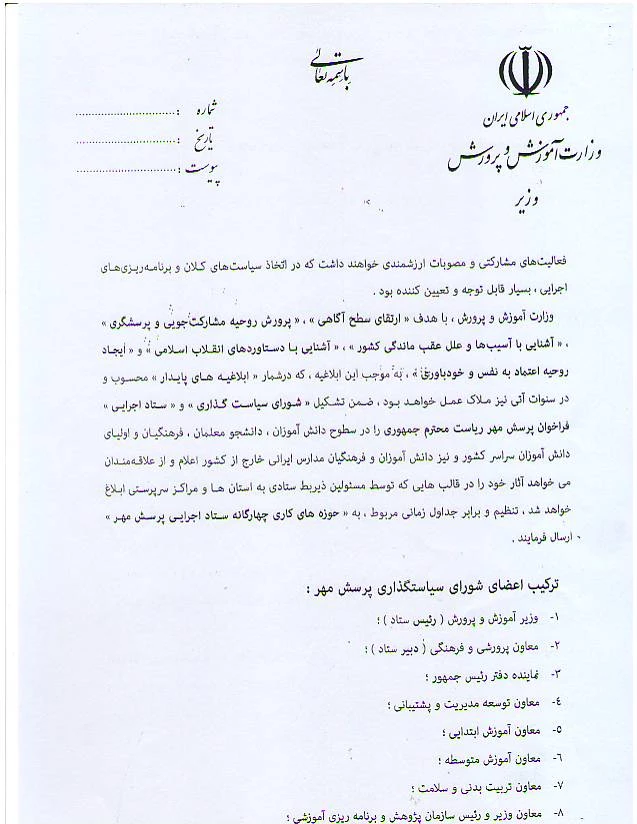 باسمه تعالی
جمهوری اسلامی ایران
وزارت آموزش و پرورش
وزیر
شماره : ..............................
تاریخ : ..............................
پیوست : ..............................
فعالیت‌های مشارکتی و مصوبات ارزشمندی خواهند داشت که در اتخاذ سیاست‌های کلان و برنامه‌ریزی‌های
اجرایی ، بسیار قابل توجه و تعیین کننده بود .
وزارت آموزش و پرورش ، با هدف « ارتقای سطح آگاهی » ، « پرورش روحیه مشارکت‌جویی و پرسشگری »
، « آشنایی با آسیب‌ها و علل عقب ماندگی کشور » ، « آشنایی با دستاوردهای انقلاب اسلامی » و « ایجاد
روحیه اعتماد به نفس و خودباوری » ، به موجب این ابلاغیه ، که درشمار « ابلاغیه های پایدار » محسوب و
در سنوات آتی نیز ملاک عمل خواهد بود ، ضمن تشکیل « شورای سیاست گذاری » و « ستاد اجرایی »
فراخوان پرسش مهر ریاست محترم جمهوری را در سطوح دانش آموزان ، دانشجو معلمان ، فرهنگیان و اولیای
دانش آموزان سراسر کشور و نیز دانش آموزان و فرهنگیان مدارس ایرانی خارج از کشور اعلام و از علاقه‌مندان
می خواهد آثار خود را در قالب هایی که توسط مسئولین ذیربط ستادی به استان ها و مراکز سرپرستی ابلاغ
خواهد شد ، تنظیم و برابر جداول زمانی مربوط ، به « حوزه های کاری چهارگانه ستاد اجرایی پرسش مهر »
ارسال فرمایند .
ترکیب اعضای شورای سیاستگذاری پرسش مهر :
۱- وزیر آموزش و پرورش ( رئیس ستاد ) ؛
۲- معاون پرورشی و فرهنگی ( دبیر ستاد ) ؛
۳- نماینده دفتر رئیس جمهور ؛
۴- معاون توسعه مدیریت و پشتیبانی ؛
۵- معاون آموزش ابتدایی ؛
۶- معاون آموزش متوسطه ؛
۷- معاون تربیت بدنی و سلامت ؛
۸- معاون وزیر و رئیس سازمان پژوهش و برنامه ریزی آموزشی ؛